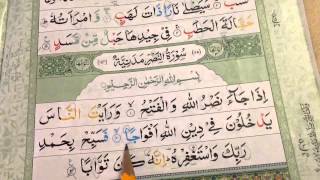 سَبَ سَيَصْلَىٰ نَارًا ذَاتَ لَهَبٍ وَّامْرَاَتُهٗ
حَمَّالَةَ الْحَطَبِ فِيْ جِيْدِهَا حَبْلٌ مِّنْ مَّسَدٍ
سُوْرَةُ النَّصْرِ مَدَنِيَّةٌ
بِسْمِ اللهِ الرَّحْمٰنِ الرَّحِيْمِ
اِذَا جَآءَ نَصْرُ اللهِ وَالْفَتْحُ وَرَاَيْتَ النَّاسَ
يَدْخُلُوْنَ فِيْ دِيْنِ اللهِ اَفْوَاجًا فَسَبِّحْ بِحَمْدِ
رَبِّكَ وَاسْتَغْفِرْهُ اِنَّهٗ كَانَ تَوَّابًا